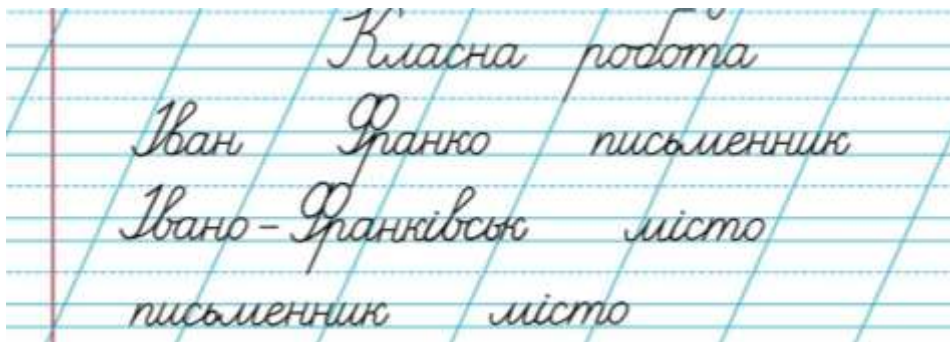 Класна робота
Іван Франко письменник
Івано-Франківськ місто
письменник місто